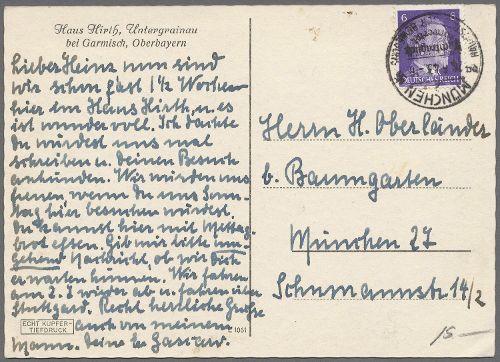 Haus Hirth, Untergrainau
bei Garmisch, Oberbayern
Lieber Heinz nun sind
wir schon fast 1 1/2 Wochen
hier im Haus Hirth, u. es
ist wundervoll. Ich dachte
du würdest uns mal
schreiben u. deinen Besuch
ankünden. Wir würden uns
freuen wenn du uns Sonn-
tag hier besuchen würdest.
Du kannst hier mit Mittag-
brot essen. Gib mir bitte um-
gehend Nachricht, ob wir dich
erwarten können. Wir fahren
am 2. 2 wieder ab u. fahren über
Stuttgard. Recht herzliche Grüße
auch von meinem
Mann. Deine
ECHT KUPFER-
TIEFDRUCK
1061
6 6
DEUTSCHES REICH
MÜNCHEN
Herrn H. Oberländer
b. Baumgarten
München 27
Schumannstr 14/2
15 –